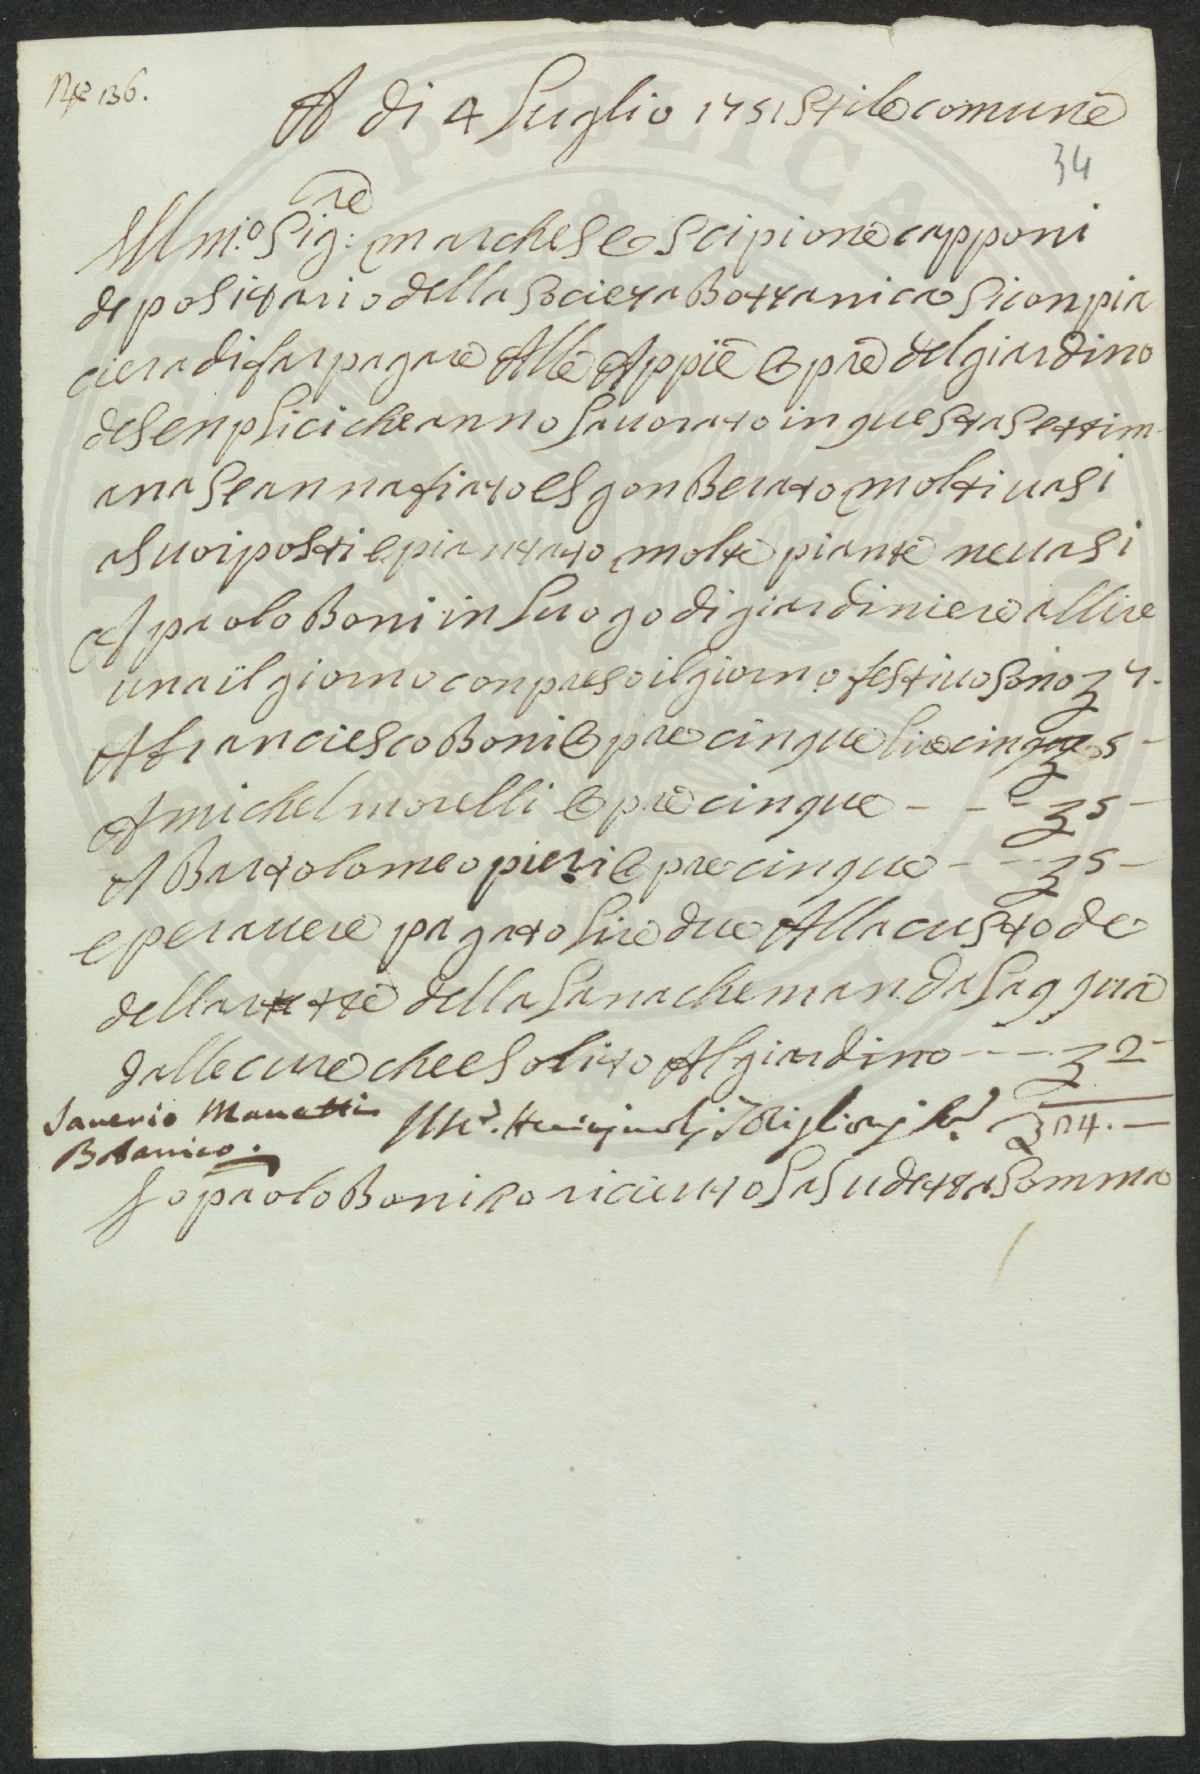 Nº 136.
A di 4 Luglio 1751 stile comune
34
Illm:o Sig:re marchese scipione capponi
depositario della societa Bottanica si conpia
ciera di far pagare Alle Appie e pre del giardino
de senplici che anno lavorato in questa settim
ana se annafiato e sgonBerato molti vasi
a suoi posti e piantato molte piante ne vasi
A paolo Boni in luogo di giardiniere a llire
una il giorno conpreso il giorno festivo sono 7.-
A franciesco Boni e pre cinque lire cinque 5-
A michel morelli e pre cinque - - - 5-
A Bartolomeo pieri e pre cinque - - - 5-
e per avere pagato lire due Alla custode
dell arte della lana che manda l aqqua
dalle cure che e solito Al giardino - - - 2-
Saverio Manetti
Botanico.
24.-
Io paolo Boni o riceuto la sudetta somma